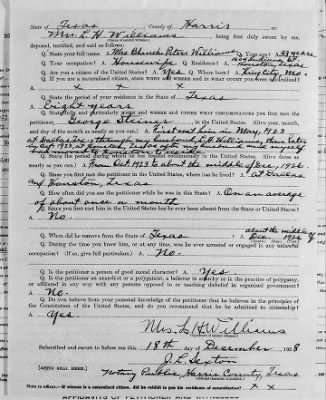 State of Texas County of Harris ss:
Mrs. L. H. Williams being first duly sworn by me,
deposed, testified, and said as follows:
Q. State your full name. A. Mrs. Blanch Peters Williams Q. Your age? A. 33 years
Q. Your occupation? A. Housewife Q. Residence?
Houston, Texas
Q. Are you a citizen of the United States? A. Yes Q. Where born? A. King City, Mo.
Q. If you are a naturalized citizen, state when and where and in what court you became so.
A. x x x x
Q. State the period of your residence in the State of Texas
A. Eight years
Q. State fully and particularly when and where and under what circumstances you first met the
petitioner, George Steiner, in the United States. (Give year, month,
and day of the month as nearly as you can.) A. First met him in May, 1923
at Dallas, Tex., through my husband, L. H. Williams, then later
Q. State the period during which he has resided continuously in the United States. (Give dates as
nearly as you can.) A. From Oct. 1923 to about the middle of Dec. 1926
Q. Since you first met the petitioner in the United States, where has he lived? A. at Dallas
and Houston, Texas
Q. How often did you see the petitioner while he was in this State? A. On an average
of about once a month
Q. Since you first met him in the United States has he ever been absent from the State or United States?
A. No
Q. When did he remove from the State of Texas about the middle of
Dec. 1926
Q. During the time you knew him, or at any time, was he ever arrested or engaged in any unlawful
occupation? (If so, give full particulars.) A. No.
Q. Is the petitioner a person of good moral character? A. Yes
Q. Is the petitioner an anarchist or a polygamist, a believer in anarchy or in the practice of polygamy,
or affiliated in any way with any persons opposed to or teaching disbelief in organized government?
A. No.
Q. Do you believe from your personal knowledge of the petitioner that he believes in the principles
of the Constitution of the United States, and do you recommend that he be admitted to citizenship?
A. Yes.
Mrs. L. H. Williams
Subscribed and sworn to before me this 18th day of December, 1928
J. L. Sexton
[AFFIX SEAL HERE.]
Notary Public, Harris County, Texas
Note to officer.—If witness is a naturalized citizen, did he exhibit to you his certificate of naturalization? x x
AFFIDAVITS OF PETITIONER AND WITNESSES